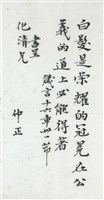 白髮是荣耀的冠冕在公
義的道上必能得著
箴言十六章卅一節
書呈
化清兄
仲正